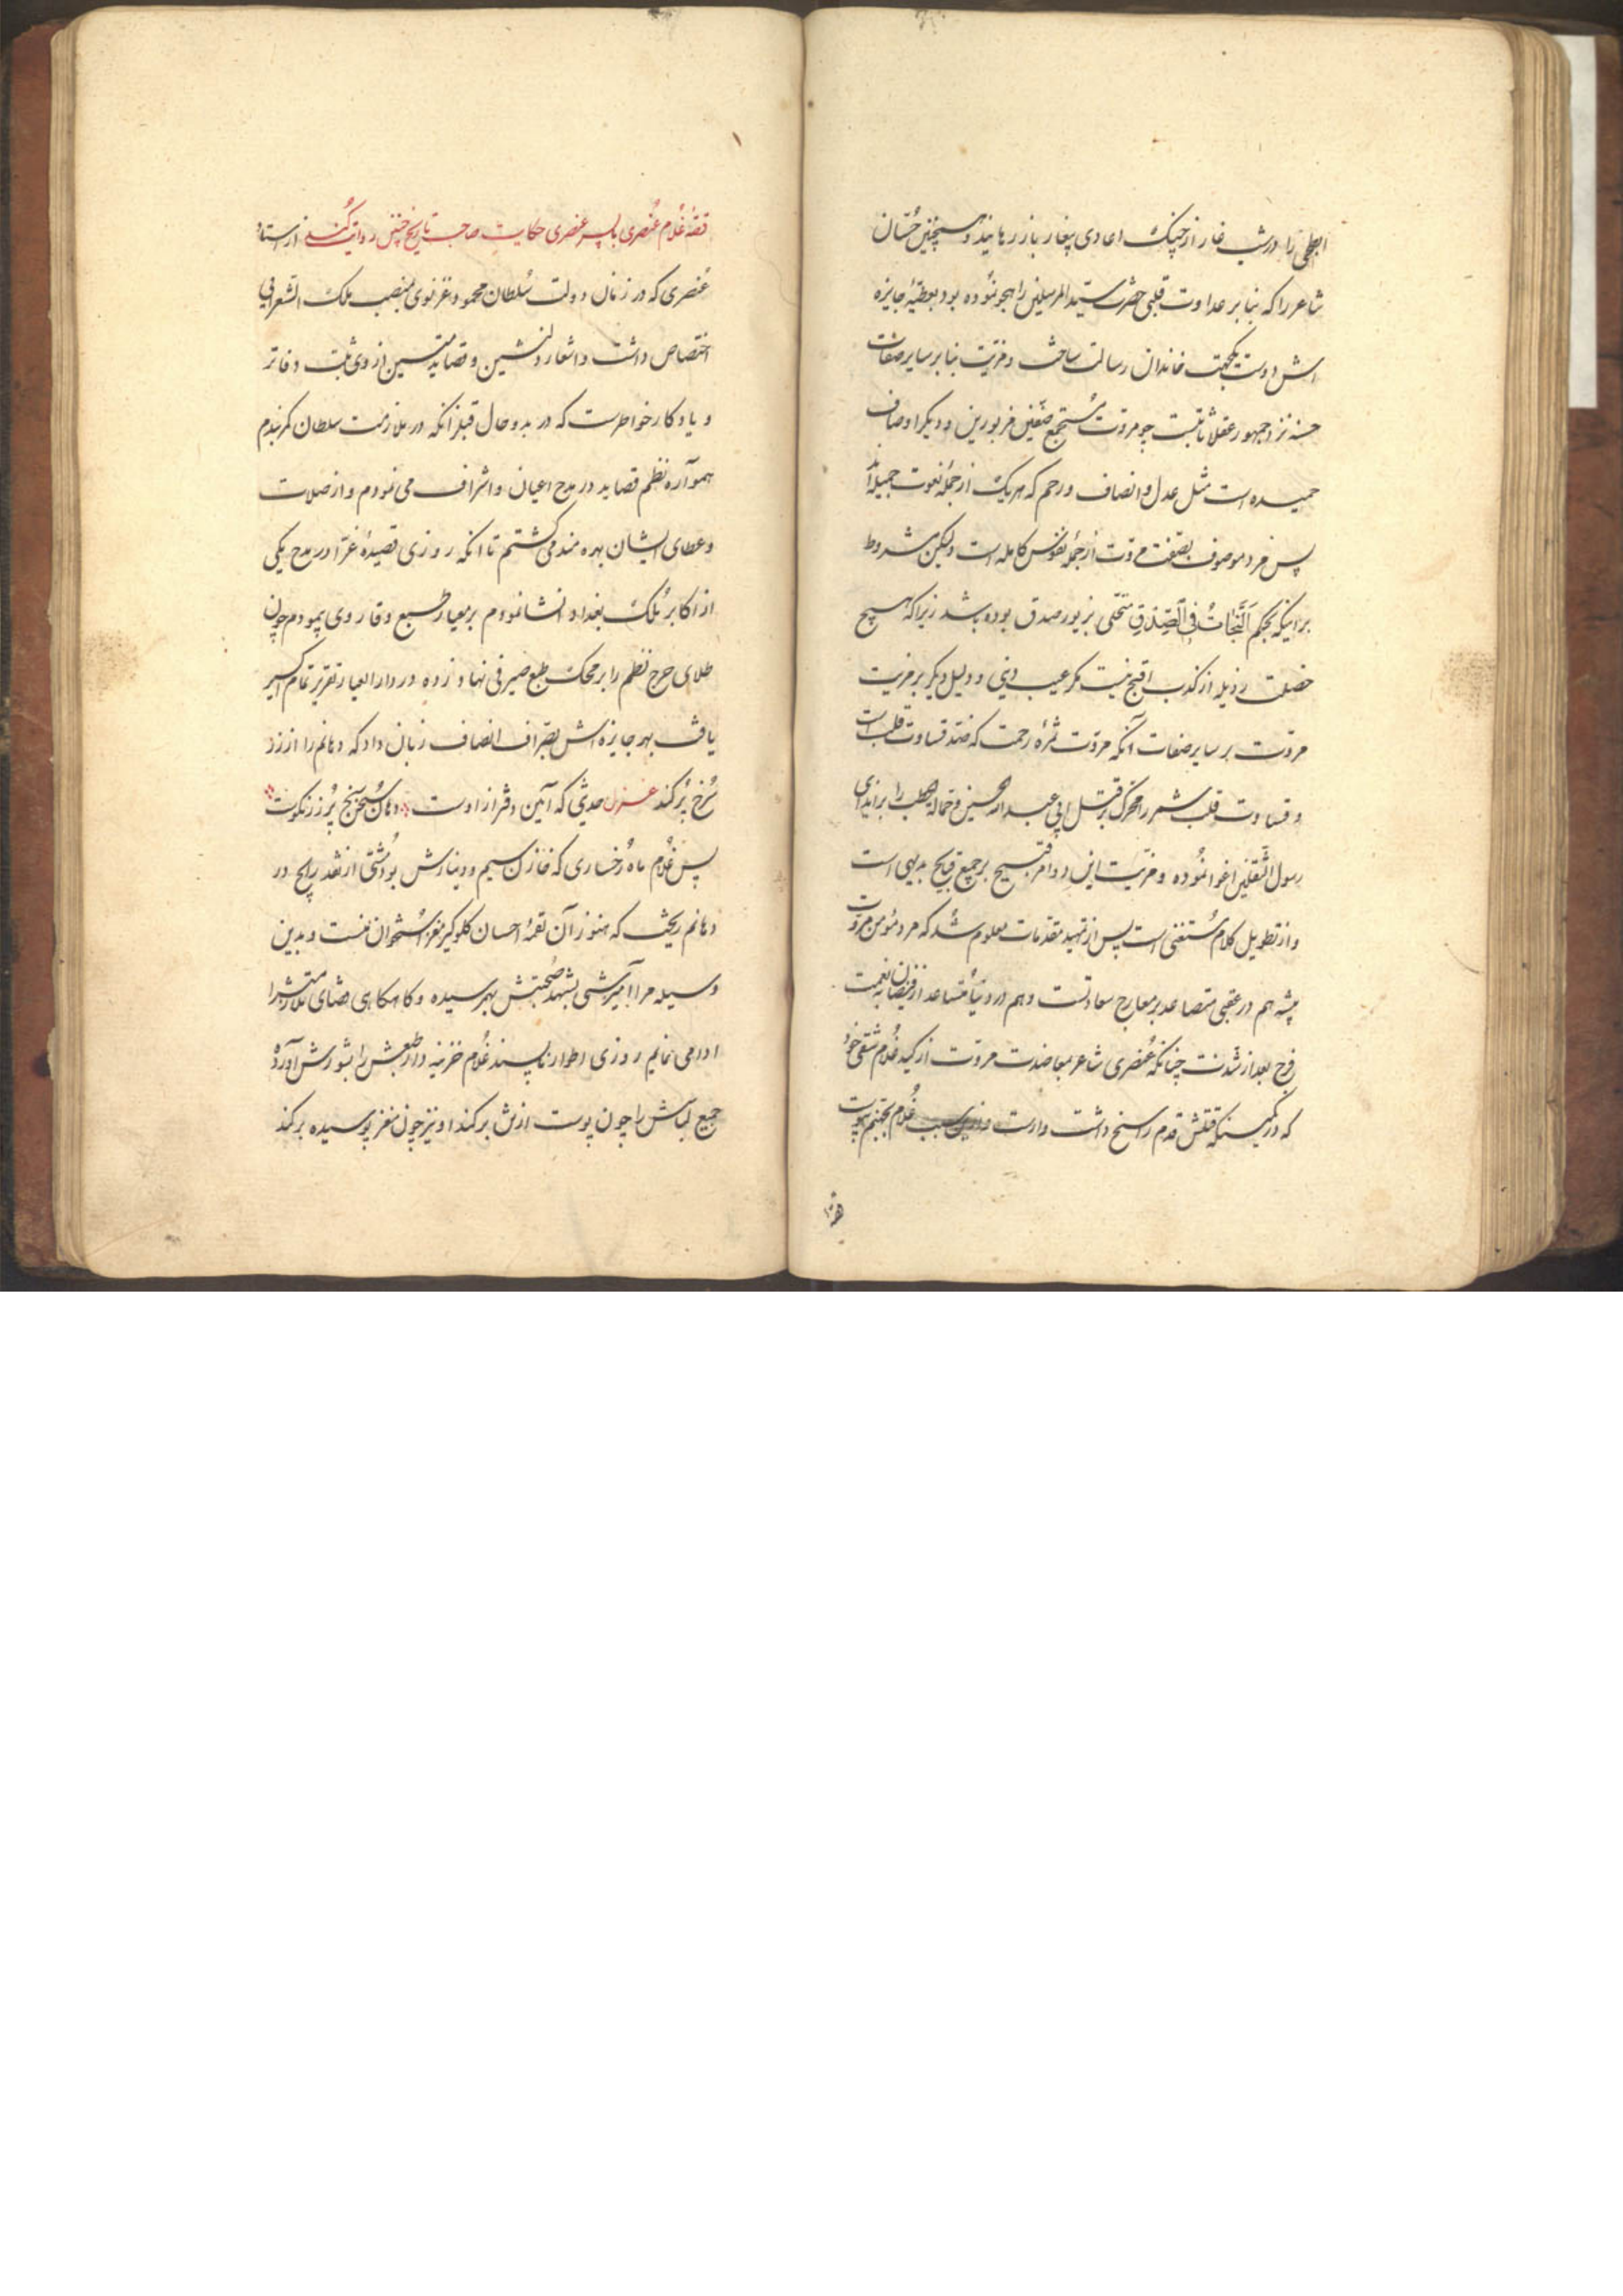 ابطحی را در شب غار از چنک اعادی بیغار باز رهانید و همچنین حسان
شاعر را که بنابر عداوت قلبی حضرت سید المرسلین را هجو نموده بود بعطیهٔ جایزه
اش دوست یکجهت خاندان رسالت ساخت و مزیت بنابر سایر صفات
حسنه نزد جمهور عقلا ثابتست چو مروت مستجمع صفتین مزبورین و دیکر اوصاف
حمیده است مثل عدل و انصاف و رحم که هر یک از جمله نعوت جمیله‌اند
پس فرد موصوف بصفت مروت از جمله نفوس کامله است ولیکن مشروط
براینکه بحکم اَلنَّجاتُ فِی الصِّدْقِ متحلی بزیور صدق بوده باشد زیرا که هیچ
خصلت رذیله از کذب اقبح نیست مکر عیب دینی و دلیل دیکر بر مزیت
مروت بر سایر صفات آنکه مروت ثمره رحمت که ضد قساوت قلب است
و قساوت قلب شمر را محرک بر قتل ابی عبد الله حسین و حمالة الحطب را بر ایذای
رسول الثقلین اغوا نموده و مزیت این دو امر قبیح بر جمیع قبایح بدیهی است
و از تطویل کلام مستغنی است پس از تمهید مقدمات معلوم شد که مرد مؤمن مروت
پیشه هم در عقبی متصاعد بر معارج سعادتست و هم در دنیا از فیضان نعمت
فرح بعد از شدت چنانکه عنصری شاعر بمعاضدت مروت از کید غلام شقی خود
که در کمینکه قتلش قدم راسخ داشت وارست سبب غلام بجهنم پیوست
قصهٔ غلام عنصری با پسر عنصری حکایت صاحب تاریخ چنین روایت کند از استاد
عنصری که در زمان دولت سلطان محمود غزنوی بمنصب ملک الشعرائی
اختصاص داشت و اشعار دلنشین و قصاید متین از وی ثبت دفاتر
و یادکار خواطرست که در بدو حال قبل از آنکه در ملازمت سلطان کمر بندم
همواره نظم قصاید در مدح اعیان و اشراف می نمودم و از صلات
و عطای ایشان بهره مند می کشتم تا آنکه روزی قصیدهٔ غرّا در مدح یکی
از اکابر ملک بغداد انشا نمودم بر معیار طبع وقار وی پیمودم چون
طلای خرج نظم را بر محک طبع صیرفی نهاد زده در دار العیار تقریر تمام اکسیر
یافت بهر جایزه اش بصراف انصاف زبان داد که دهانم را از زر
سرخ پر کند غزل حدیثی که آیین دفتر از اوست دهان سخن سنج پر زر نکوست
پس غلام ماه رخساری که خازن سیم و دینارش بود مشتی از نقد رایج در
دهانم ریخت که هنوز آن لقمهٔ احسان کلوکیر مغز استخوان منست و بدین
وسیله مرا آمیزشی بشهد صحبتش بهم رسیده و کاهکاهی قضای ملازمتش را
ادا می نمایم روزی اطوار ناپسند غلام خزینه دار طبعش را بشورش آورده
جمیع لباسش را چون پوست از تنش برکند او نیز چون مغز پوسیده برکند